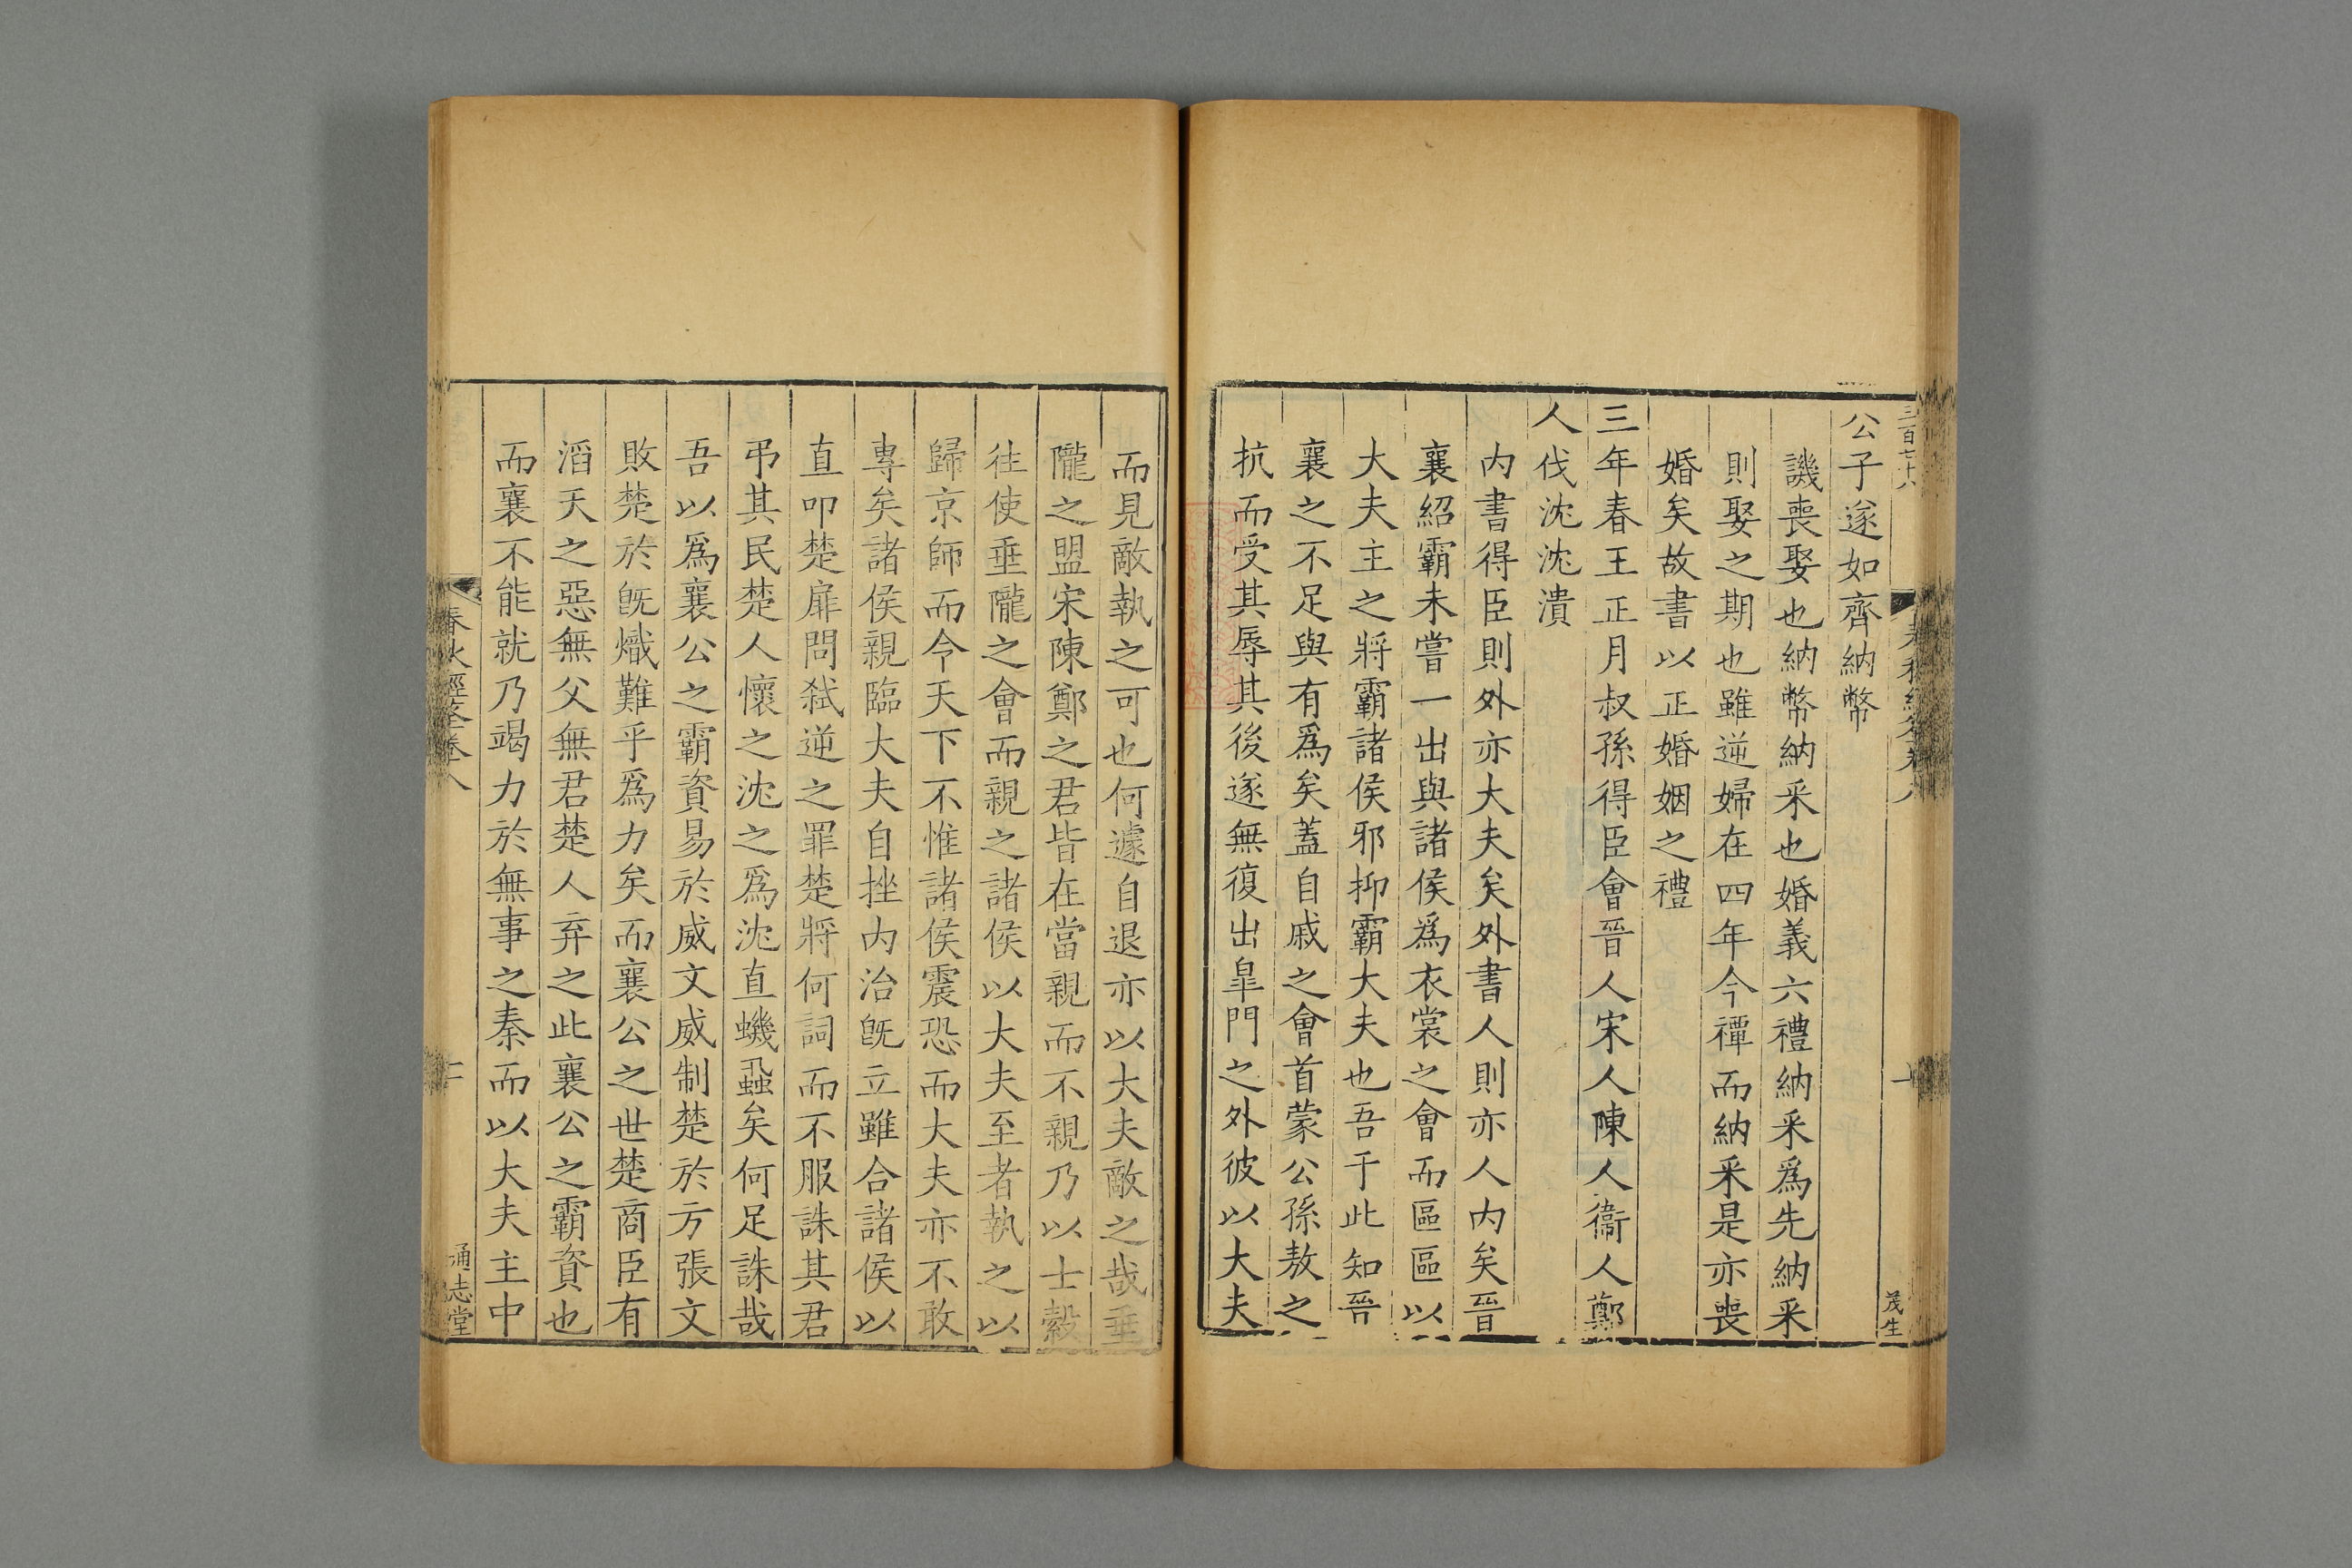 公子遂如齊納幣
譏喪娶也納幣納釆也婚義六禮納釆爲先納釆
則娶之期也雖逆婦在四年今禫而納釆是亦喪
婚矣故書以正婚姻之禮
三年春王正月叔孫得臣會晉人宋人陳人衞人鄭
人伐沈沈潰
内書得臣則外亦大夫矣外書人則亦人内矣晉
襄紹霸未嘗一出與諸侯爲衣裳之會而區區以
大夫主之將霸諸侯邪抑霸大夫也吾于此知晉
襄之不足與有爲矣蓋自戚之會首蒙公孫敖之
抗而受其辱其後遂無復出皐門之外彼以大夫
茂生
而見敵執之可也何遽自退亦以大夫敵之哉垂
隴之盟宋陳鄭之君皆在當親而不親乃以士縠
往使垂隴之會而親之諸侯以大夫至者執之以
歸京師而今天下不惟諸侯震恐而大夫亦不敢
專矣諸侯親臨大夫自挫内治旣立雖合諸侯以
直叩楚扉問弑逆之罪楚將何詞而不服誅其君
弔其民楚人懷之沈之爲沈直蟣蝨矣何足誅哉
吾以爲襄公之霸資易於威文威制楚於方張文
敗楚於旣熾難乎爲力矣而襄公之世楚商臣有
滔天之惡無父無君楚人弃之此襄公之霸資也
而襄不能就乃竭力於無事之秦而以大夫主中
春秋經筌卷八
二
通志堂